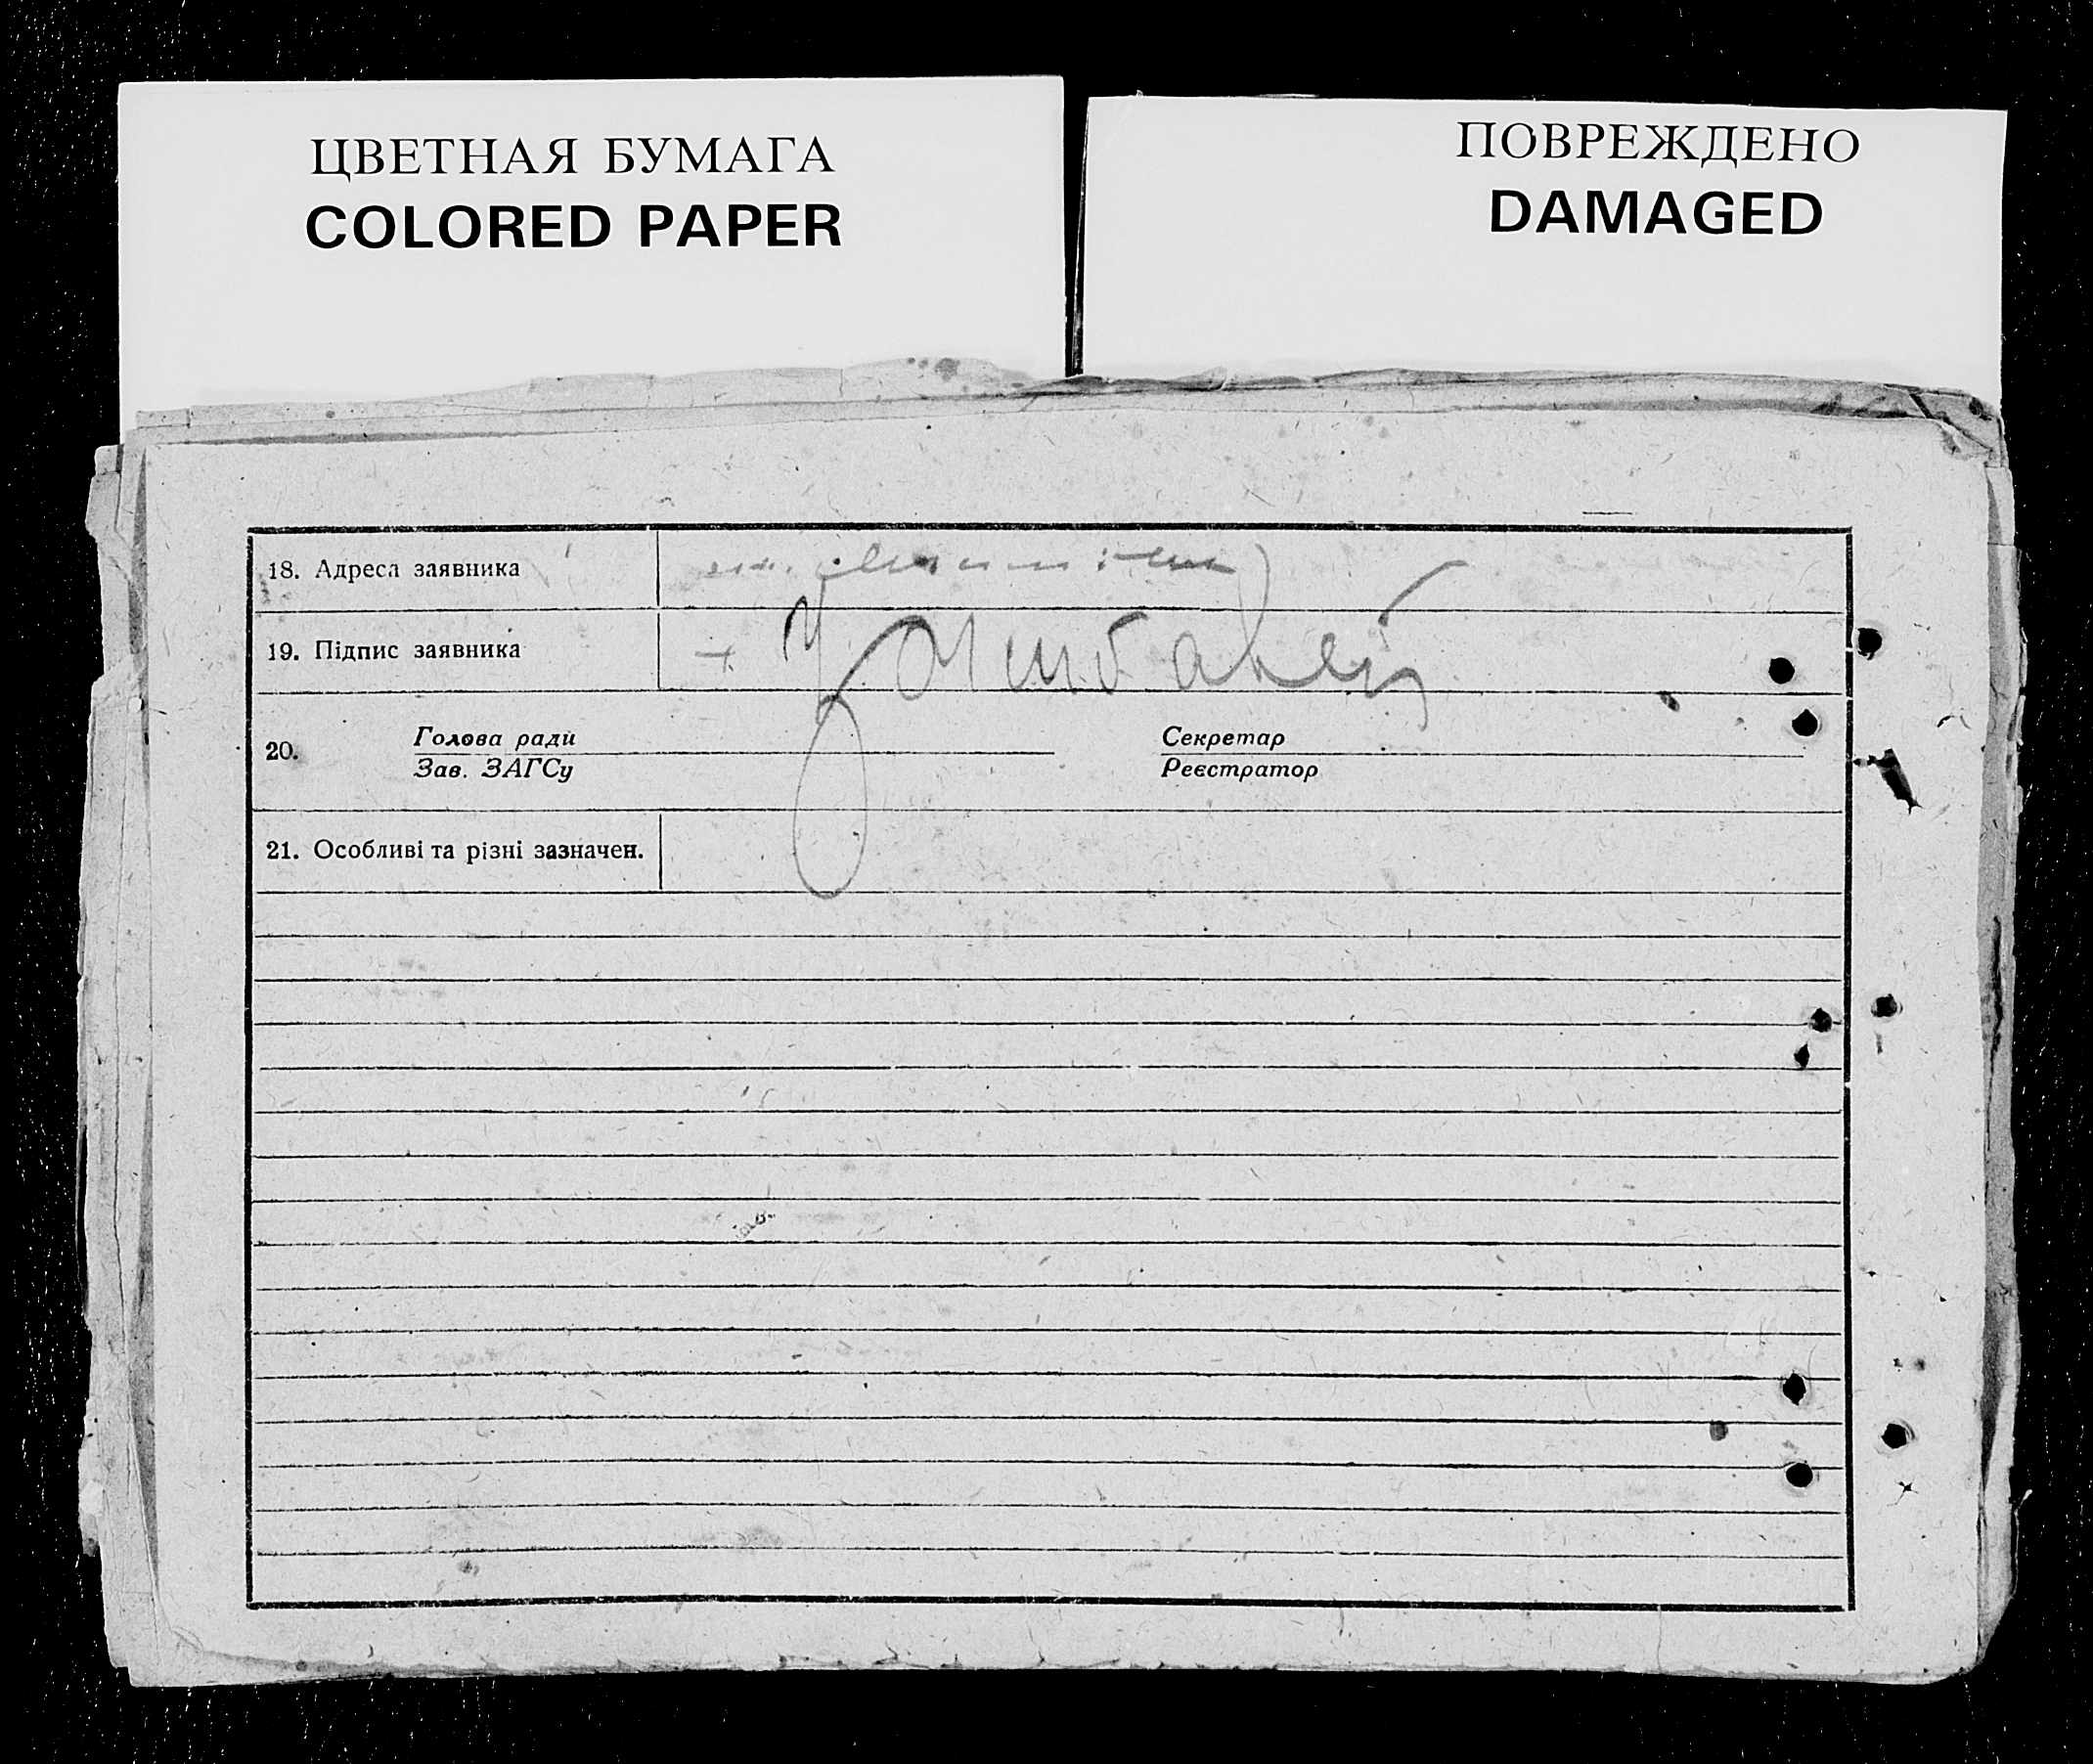 ЦВЕТНАЯ БУМАГА
COLORED PAPER
ПОВРЕЖДЕНО
DAMAGED
18. Адреса заявника
19. Підпис заявника
20. Голова ради
Зав. ЗАГСу
Секретар
Реєстратор
21. Особливі та різні зазначен.